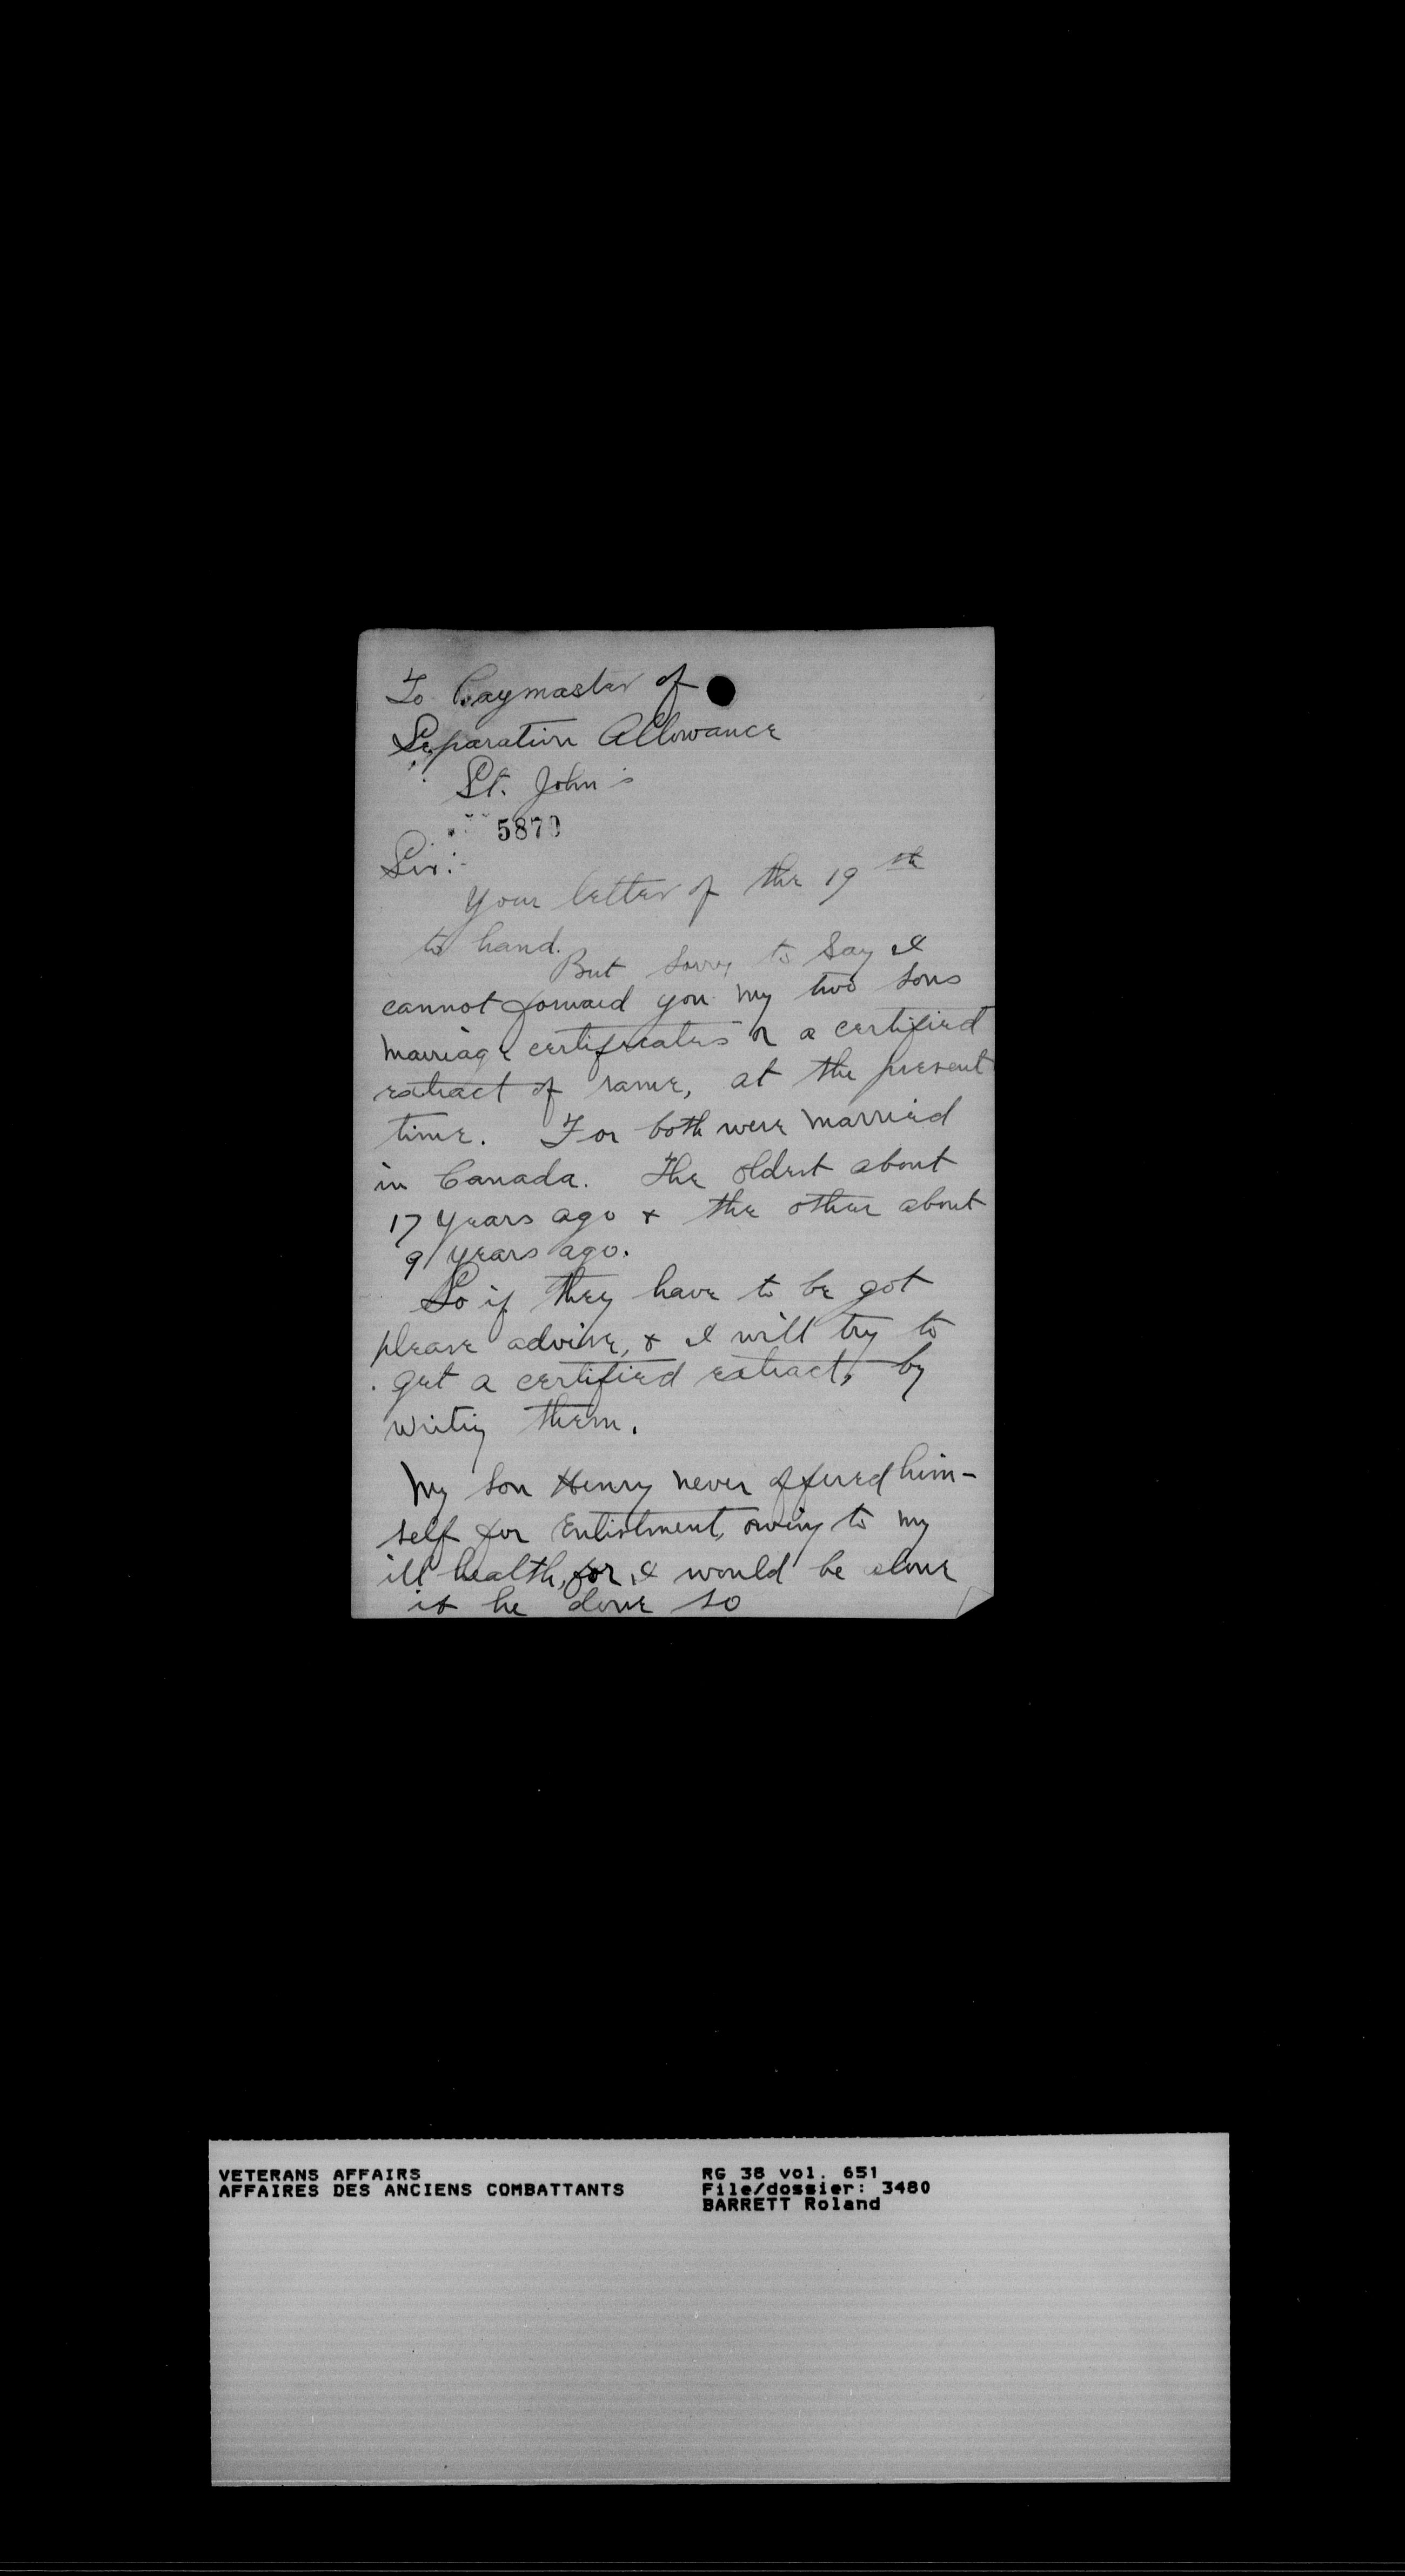 To Paymaster of
Separation Allowance
St. John's
5870
Sir:-
Your letter of the 19th
to hand.
But sorry to say I
cannot forward you my two sons
marriage certificates or a certified
extract of same, at the present
time. For both were married
in Canada. The oldest about
17 years ago & the other about
9 years ago.
So if they have to be got
please advise, & I will try to
get a certified extract, by
writig them.
My son Henry never offered him-
self for Enlistment, owing to my
ill health, for I would be alone
if he done so
VETERANS AFFAIRS
AFFAIRES DES ANCIENS COMBATTANTS
RG 38 vol. 651
File/dossier: 3480
BARRETT Roland